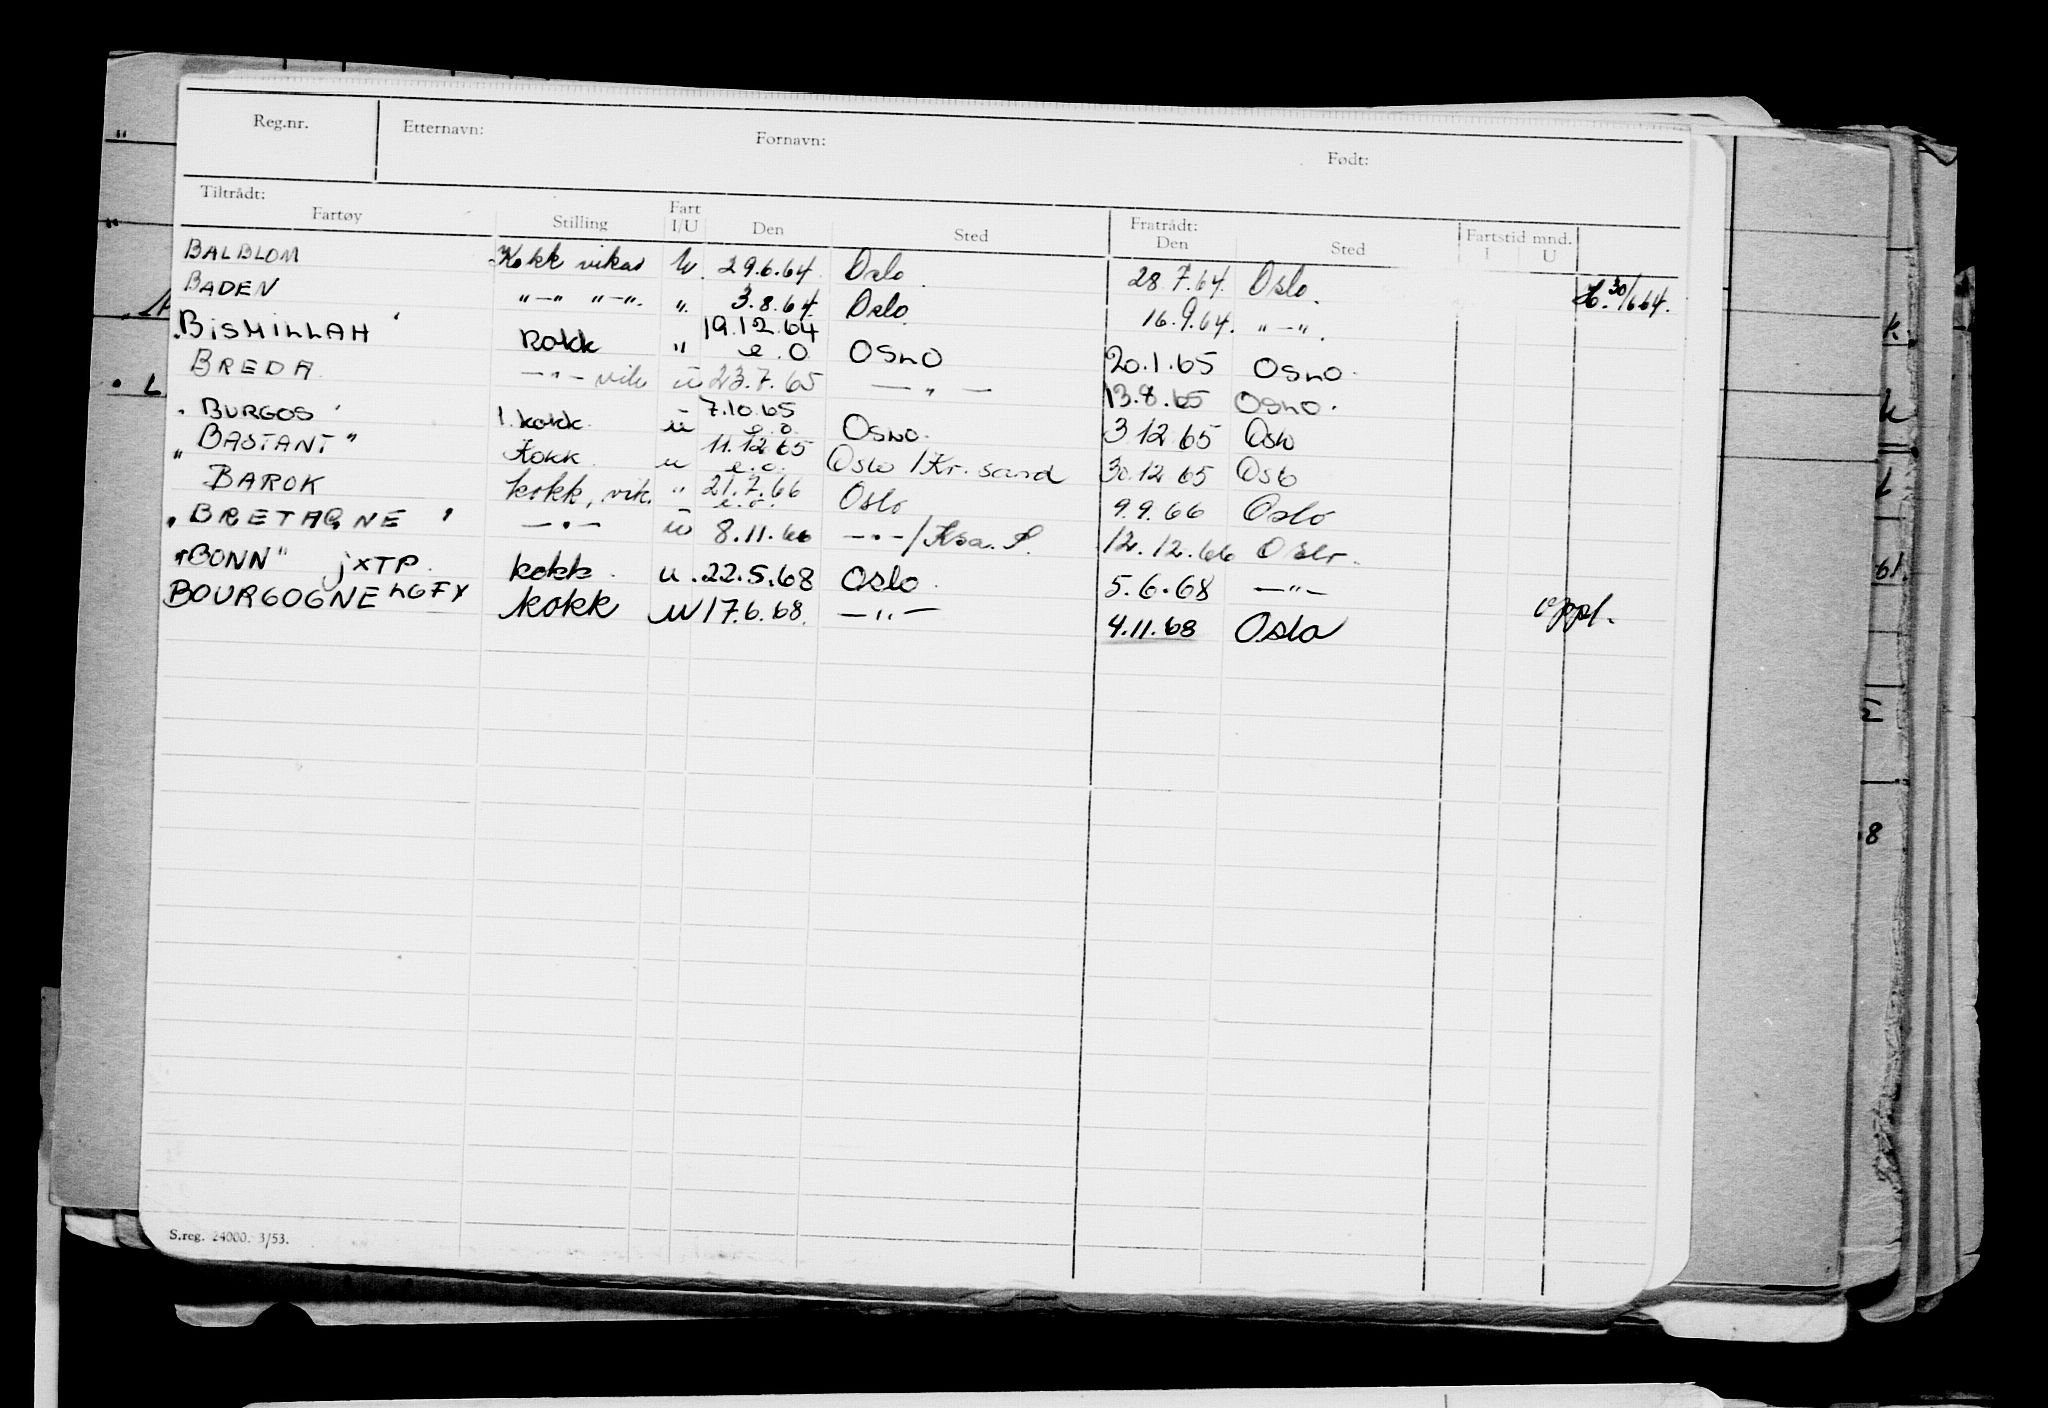 Reg.nr. Etternavn: Fornavn: Født:
Tiltrådt: Fratrådt:
Fartøy Stilling Fart I/U Den Sted Den Sted Fartstid mnd. I U
BALBLOM Kokk vikar U. 29.6.64. Oslo. 28.7.64. Oslo. 30/6.64.
BADEN "—" "—". ". 3.8.64. Oslo. 16.9.64. "—".
"BISMILLAH" Kokk " 19.12.64 e.o OSLO 20.1.65 OSLO.
BREDA —"— vik u 23.7.65 —"— 13.8.65 OSLO.
"BURGOS" 1.kokk. u 7.10.65 e.o. OSLO. 3 12 65 Oslo
"BASTANT" Kokk. u 11.12.65 e.o. Oslo/Kr.sand 30.12 65 Oslo
BAROK kokk, vik. " 21.7.66 e.o. Oslo 9.9.66 Oslo
"BRETAGNE" —"— u 8.11.66 —"—/Ksa. S. 12.12.66 Oslo.
"BONN" JXTP. kokk. u. 22.5.68 Oslo. 5.6.68 —"—
BOURGOGNE LGFY kokk u 17.6.68. —"— 4.11.68 Oslo oppl.
S.reg. 24000. 3/53.